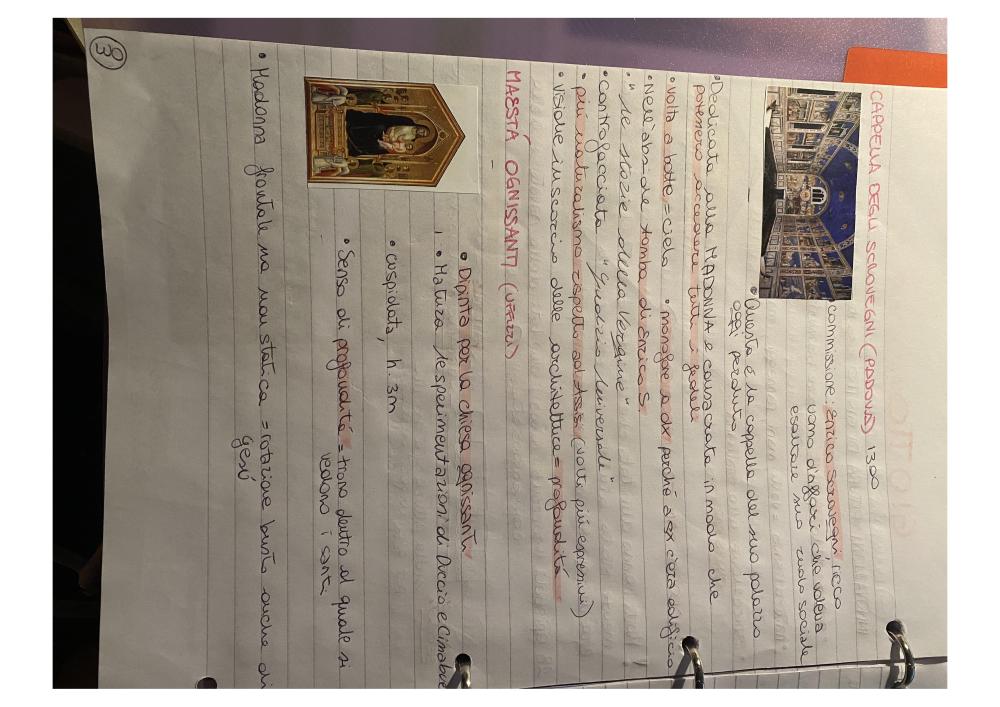 CAPPELLA DEGLI SCROVEGNI (PADOVA) 1300
commissione: Enrico Scrovegni, ricco
uomo d'affari che voleva
esaltare suo ruolo sociale
• Questa è la cappella del suo palazzo
oggi perduto
• Dedicata alla MADONNA e consacrata in modo che
potessero accedere tutti i fedeli
• volta a botte = cielo • monofore a dx perché a sx c'era edificio
• Nell'abside tomba di Enrico S.
• "le storie della Vergine"
• controfacciata "Giudizio Universale"
• più naturalismo rispetto ad Assisi (volti più espressivi)
• visione in scorcio delle architetture = profondità
MAESTÁ OGNISSANTI (UFFIZI)
• Dipinta per la chiesa ognissanti
• Matura le sperimentazioni di Duccio e Cimabue
• cuspidata, h. 3m
• Senso di profondità = trono dentro al quale si
vedono i santi
• Madonna frontale ma non statica = rotazione busto anche di
Gesù
03